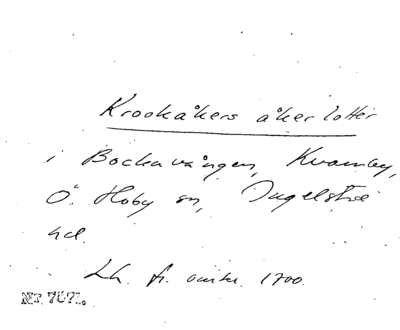 Krookåkers åkerlotter
i Bockavången, Kvarnby,
Ö. Hoby sn, Ingelstad
hd.
Lh. fr. omkr. 1700.
Nr. 7071.